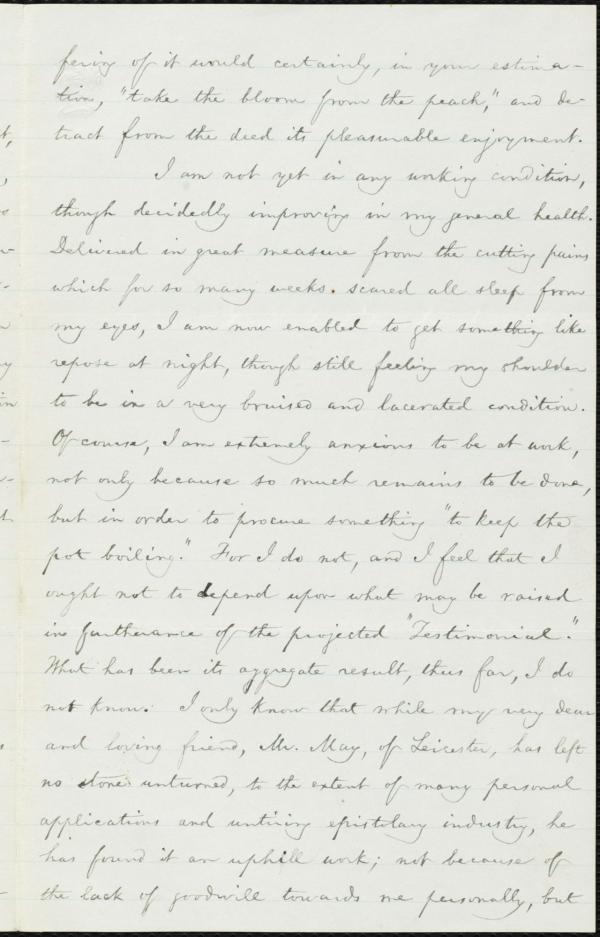 fering of it would certainly, in your estima-
tion, "take the bloom from the peach," and de-
tract from the deed its pleasurable enjoyment.
I am not yet in any working condition,
though decidedly improving in my general health.
Delivered in great measure from the cutting pains
which for so many weeks scared all sleep from
my eyes, I am now enabled to get something like
repose at night, though still feeling my shoulder
to be in a very bruised and lacerated condition.
Of course, I am extremely anxious to be at work,
not only because so much remains to be done,
but in order to procure something "to keep the
pot boiling." For I do not, and I feel that I
ought not to depend upon what may be raised
in furtherance of the projected "Testimonial."
What has been its aggregate result, thus far, I do
not know. I only know that while my very dear
and loving friend, Mr. May, of Leicester, has left
no stone unturned, to the extent of many personal
applications and untiring epistolary industry, he
has found it an uphill work; not because of
the lack of goodwill towards me personally, but